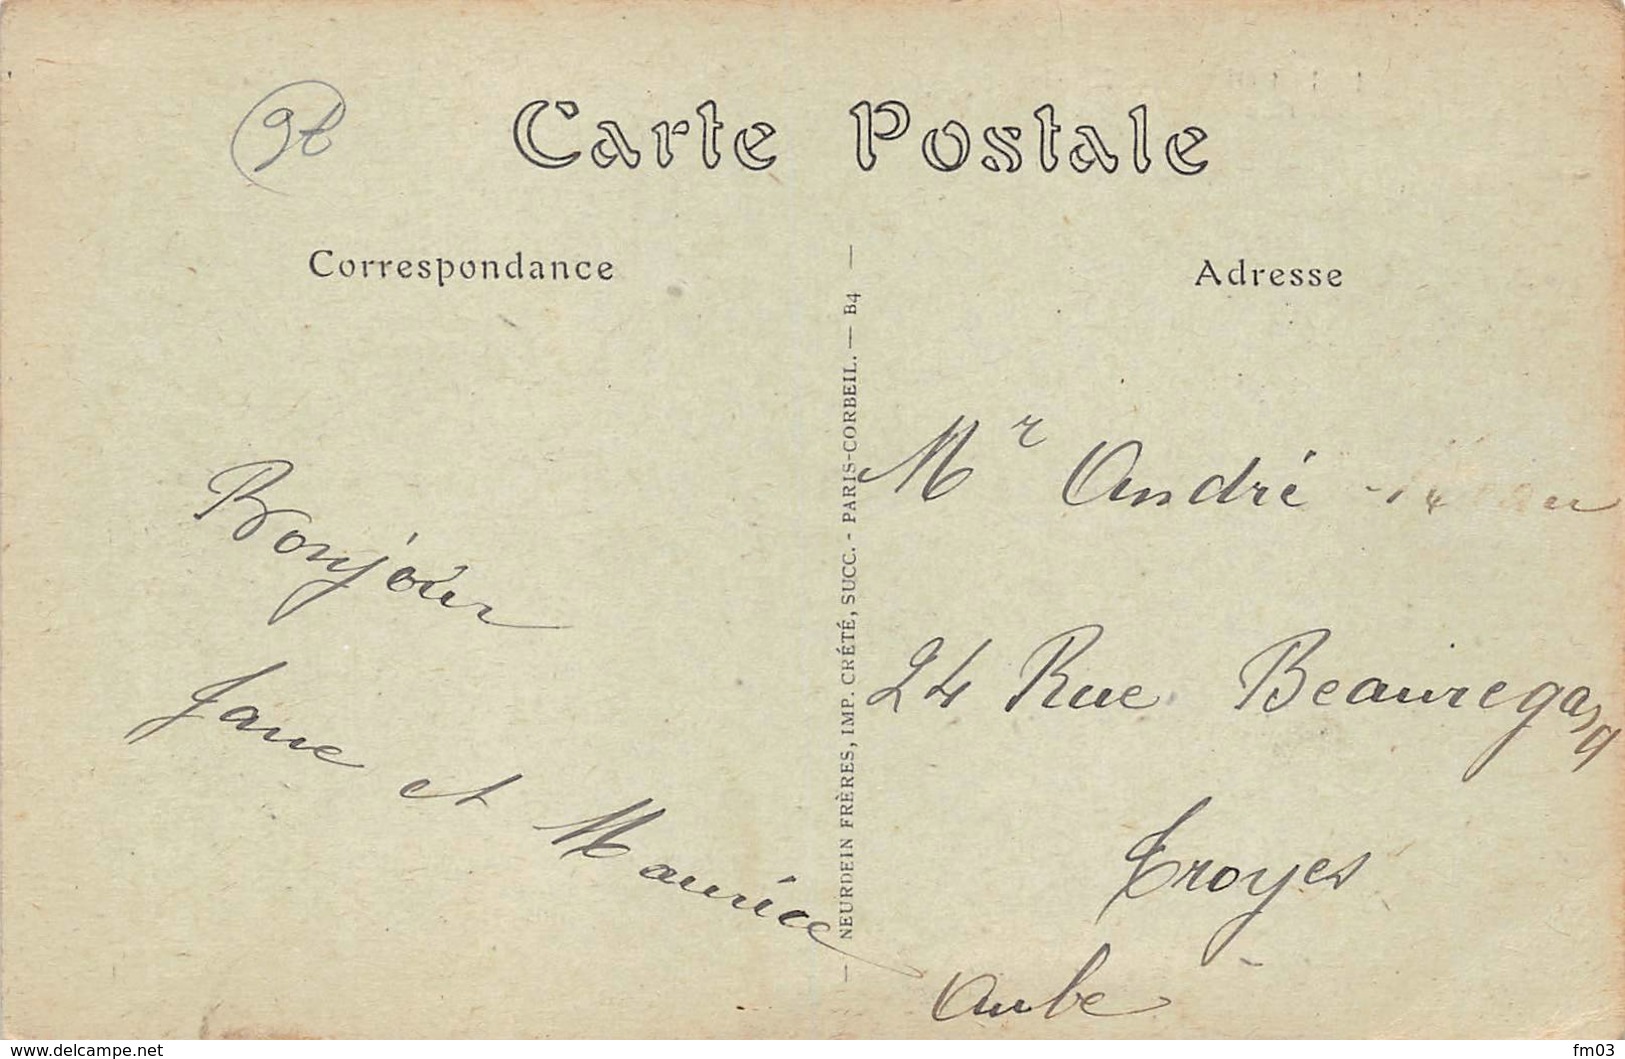 Carte Postale
Correspondance
Adresse
Bonjour
Jane et Maurice
NEURDEIN FRÈRES, IMP. CRÉTÉ, SUCC. - PARIS-CORBEIL. — B4
Mr André
24 Rue Beauregard
Troyes
Aube
www.delcampe.net
fm03